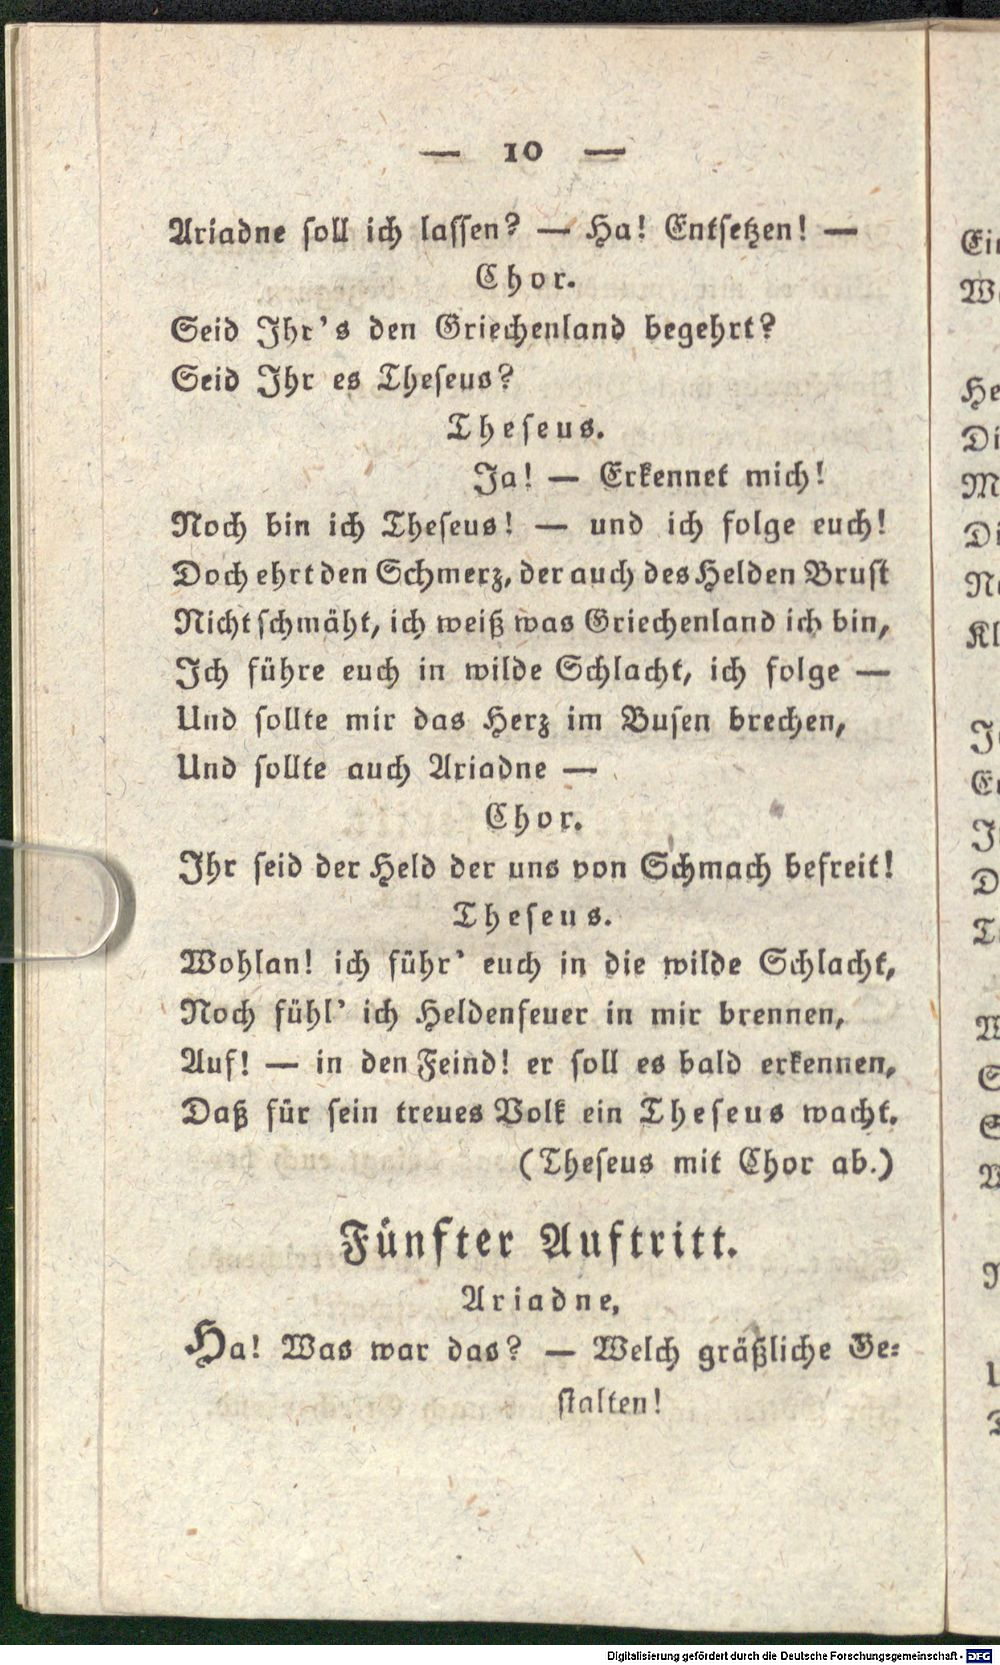 — 10 —
Ariadne soll ich lassen? — Ha! Entsetzen! —
Chor.
Seid Ihr's den Griechenland begehrt?
Seid Ihr es Theseus?
Theseus.
Ja! — Erkennet mich!
Noch bin ich Theseus! — und ich folge euch!
Doch ehrt den Schmerz, der auch des Helden Brust
Nicht schmäht, ich weiß was Griechenland ich bin,
Ich führe euch in wilde Schlacht, ich folge —
Und sollte mir das Herz im Busen brechen,
Und sollte auch Ariadne —
Chor.
Ihr seid der Held der uns von Schmach befreit!
Theseus.
Wohlan! ich führ' euch in die wilde Schlacht,
Noch fühl' ich Heldenfeuer in mir brennen,
Auf! — in den Feind! er soll es bald erkennen,
Daß für sein treues Volk ein Theseus wacht.
(Theseus mit Chor ab.)
Fünfter Auftritt.
Ariadne,
Ha! Was war das? — Welch gräßliche Ge-
stalten!
Digitalisierung gefördert durch die Deutsche Forschungsgemeinschaft - DFG